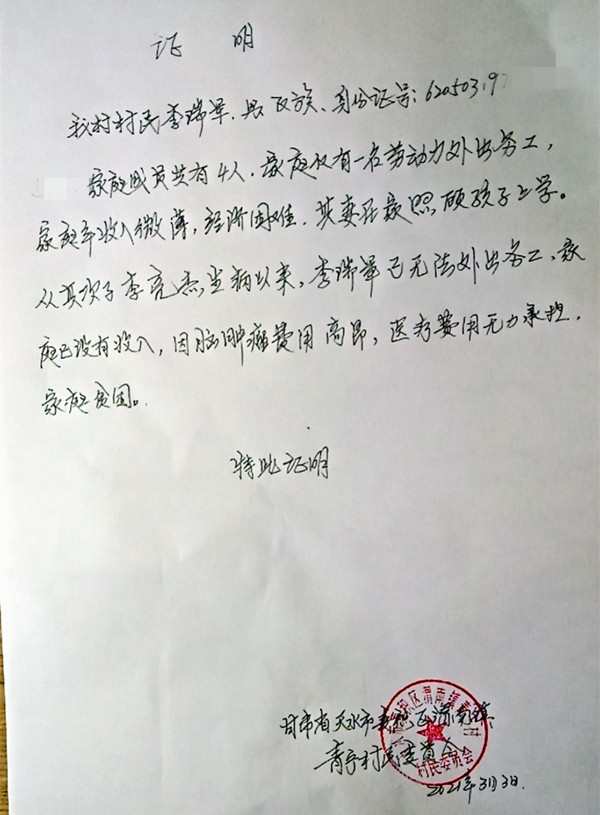 证 明
我村村民李瑞军,男汉族、身份证号:620503197
家庭成员共有4人.家庭仅有一名劳动力外出务工,
家庭年收入微薄,经济困难.其妻在家照顾孩子上学。
从其次子李亮杰生病以来,李瑞军已无法外出务工,家
庭已没有收入,因脑肿瘤费用高昂,医疗费用无力承担,
家庭贫困。
特此证明
甘肃省天水市麦积区渭南镇
青宁村民委员会
2021年3月3日.
麦积区渭南镇青宁村
村民委员会